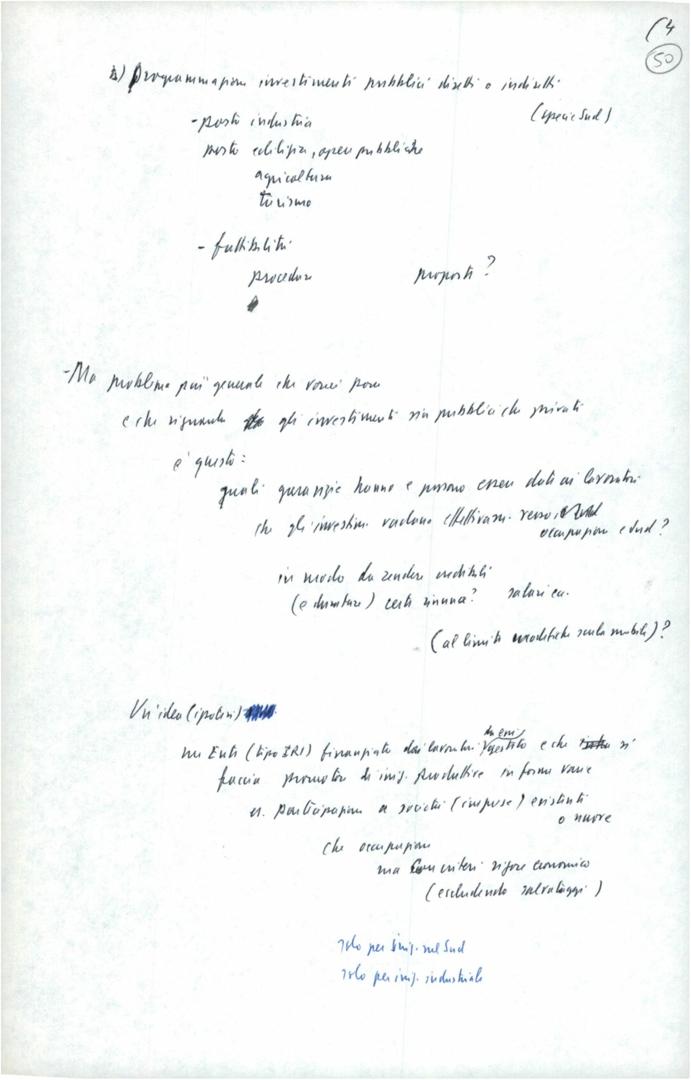 (4
50
b) Programmazione investimenti pubblici diretti o indiretti
(specie Sud)
- posto industria
posto edilizia, opere pubbliche
agricoltura
turismo
- fattibilità
procedure proposte?
- Ma problema più generale che vorrei porre
e che riguarda gli investimenti sia pubblici che privati
è questo:
quali garanzie hanno e possono essere date ai lavoratori
che gli investim. vadano effettivam. verso
occupazione e Sud?
in modo da rendere credibili
(e durature) certe rinunce? salari ca.
(al limite modifiche scala mobile)?
Un'idea (ipotesi)
un Ente (tipo IRI) finanziato dai lavoratori da essi gestito e che si
faccia promotore di iniz. produttive in forme varie
es. partecipazione a società (imprese) esistenti
o nuove
che occupazione
ma con criteri rigore economico
(escludendo salvataggi)
solo per iniz. nel Sud
solo per iniz. industriale